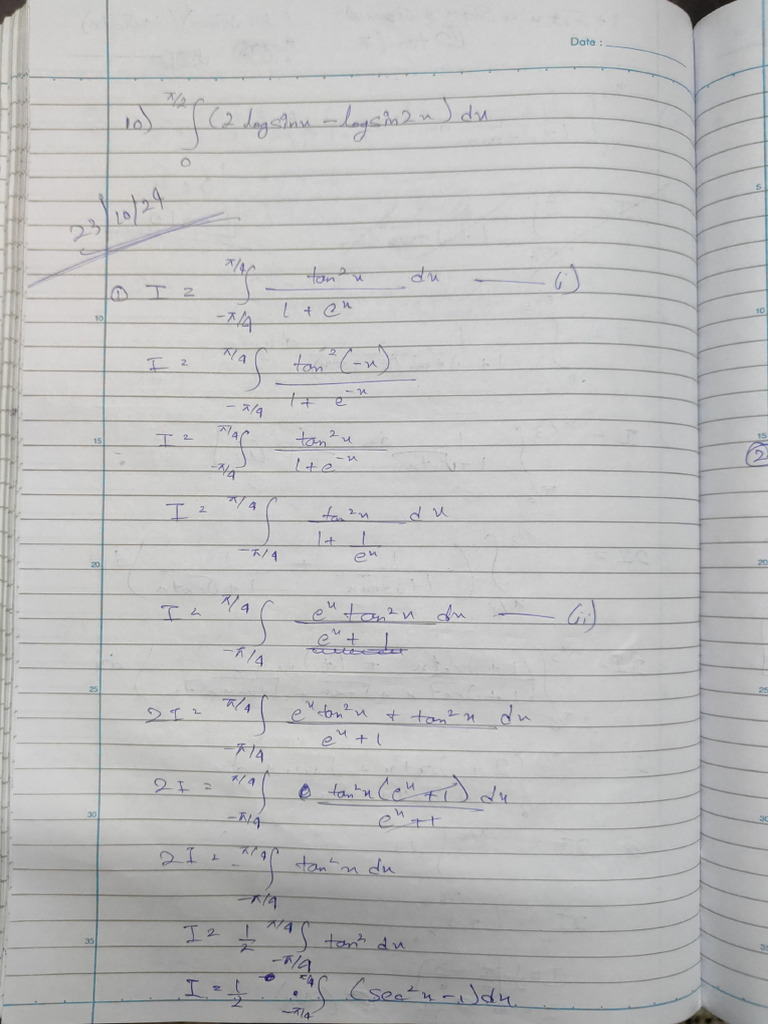 Date :
10) ∫_0^{π/2} (2 log sin x - log sin 2x) dx
23/10/24
① I = ∫_{-π/4}^{π/4} tan²x / (1 + e^x) dx —— (i)
I = ∫_{-π/4}^{π/4} tan²(-x) / (1 + e^{-x})
I = ∫_{-π/4}^{π/4} tan²x / (1 + e^{-x})
I = ∫_{-π/4}^{π/4} tan²x / (1 + 1/e^x) dx
I = ∫_{-π/4}^{π/4} e^x tan²x / (e^x + 1) dx —— (ii)
2I = ∫_{-π/4}^{π/4} (e^x tan²x + tan²x) / (e^x + 1) dx
2I = ∫_{-π/4}^{π/4} tan²x (e^x + 1) / (e^x + 1) dx
2I = ∫_{-π/4}^{π/4} tan²x dx
I = 1/2 ∫_{-π/4}^{π/4} tan² dx
I = 1/2 ∫_{-π/4}^{π/4} (sec²x - 1) dx
5
10
15
20
25
30
35
5
10
15
②
20
25
30
35